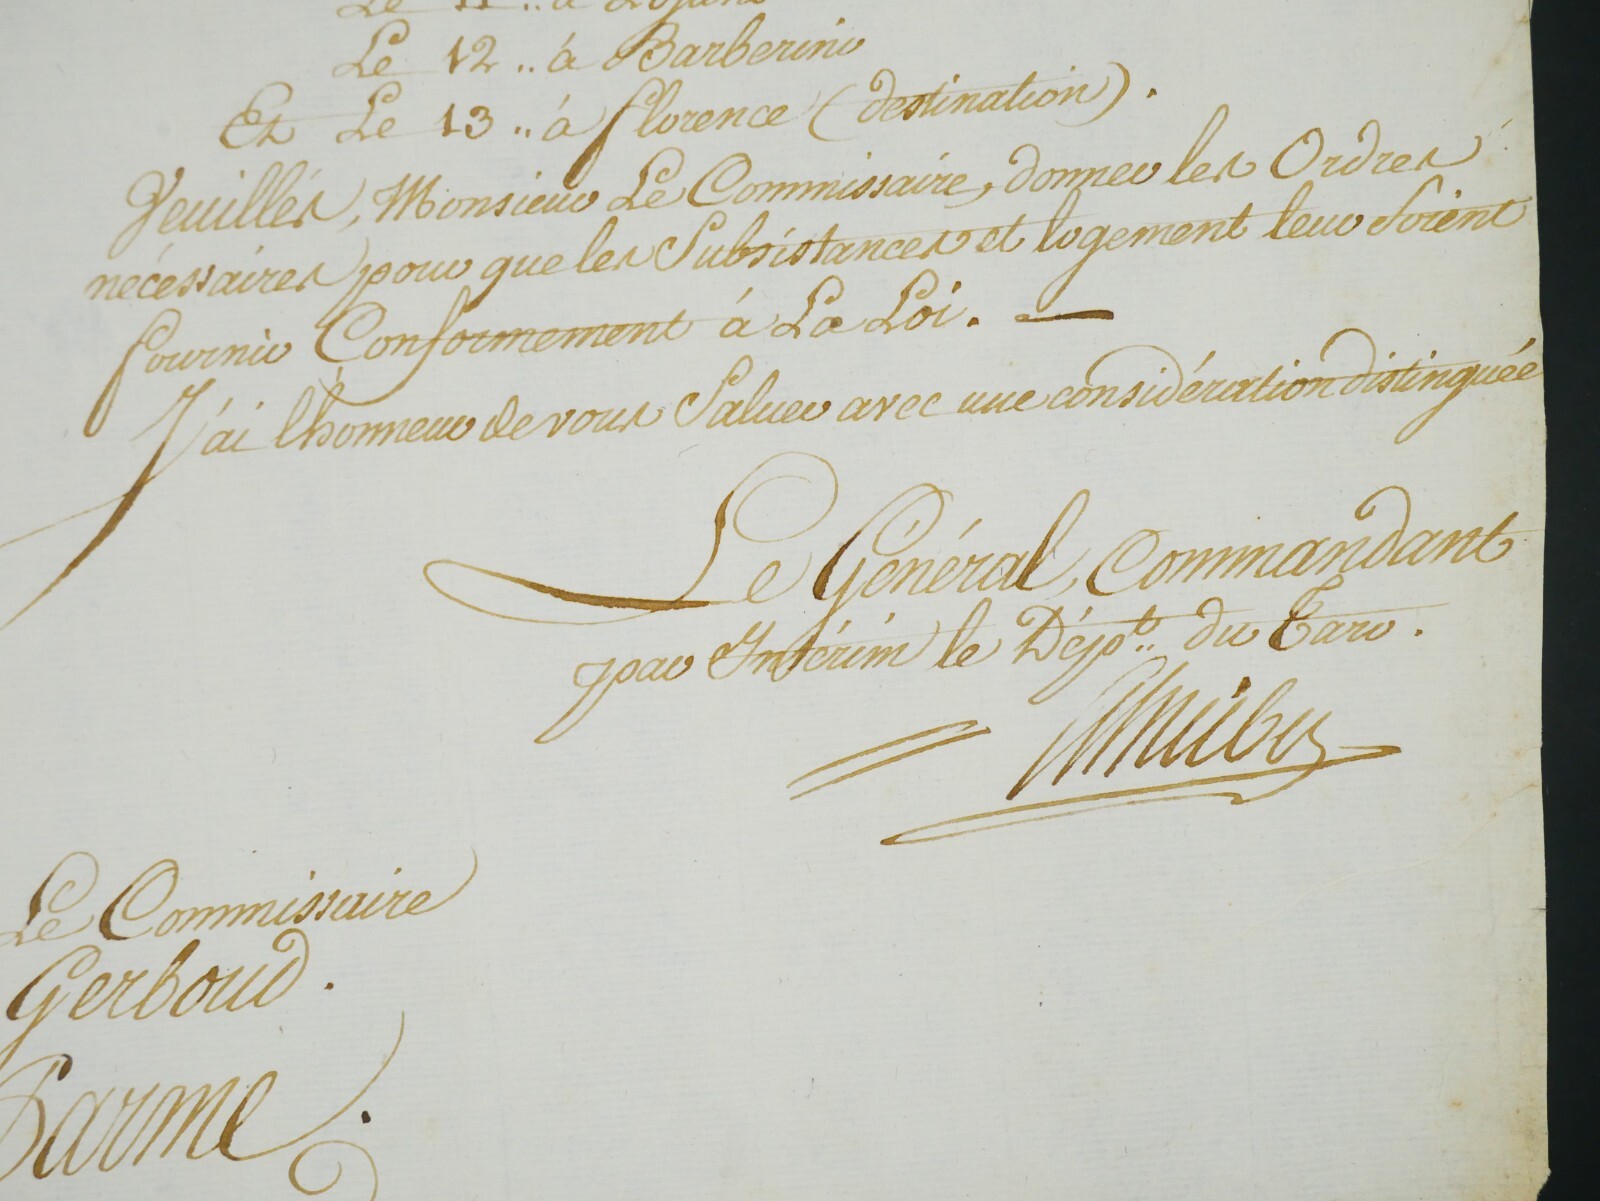 Le 11 .. à Lojano
Le 12 .. à Barberino
Et Le 13 .. à florence (destination).
Veuillés, Monsieur Le Commissaire, donner les Ordres
nécessaires pour que les Subsistances et logement leur Soient
fournir Conformement à La Loi. —
J'ai lhonneur de vous Saluer avec une considération distinguée
Le Général, Commandant
par Intérim le Dépt. du Taro.
Le Commissaire
Gerboud.
Parme.